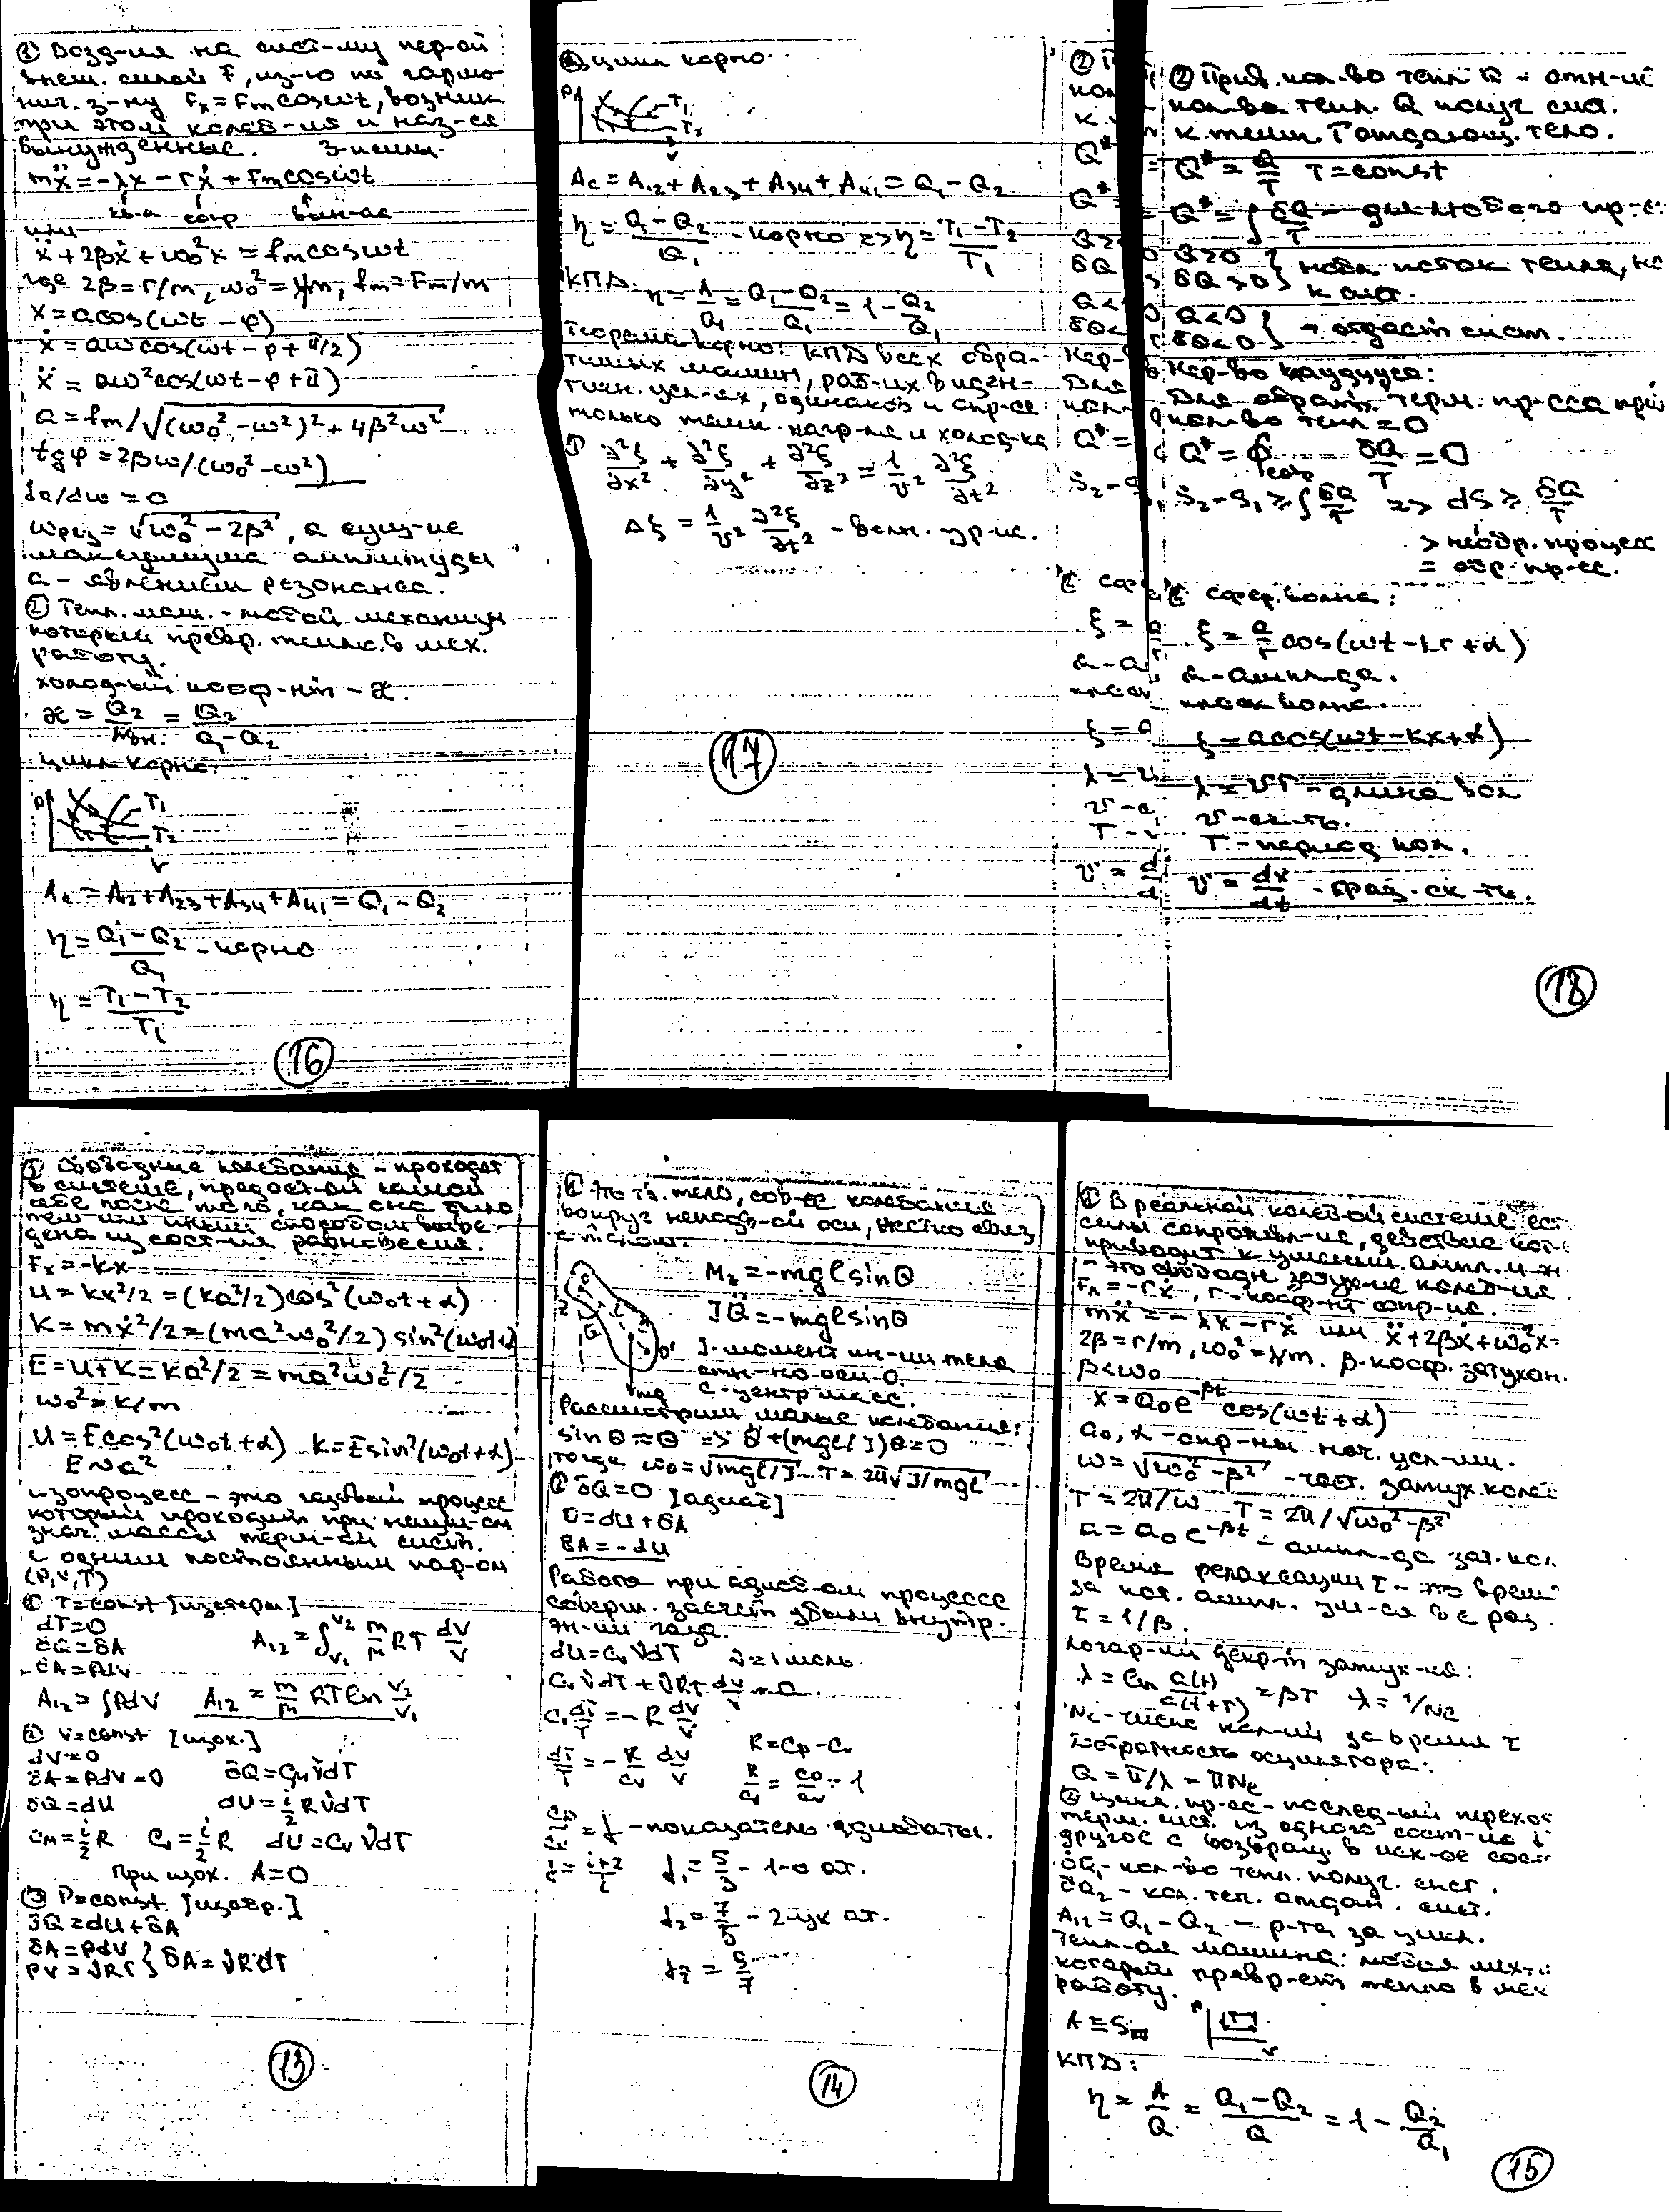 ① Возд-ия на сист-му пер-ой
внеш. силой F, из-ю по гармо-
нич. з-ну Fₓ = Fₘcosωt, возник.
при этом колеб-ия и наз-ся
вынужденные. 3-испы.
mẍ = -λx - rẋ + Fₘcosωt
кв-а сопр вын-ая
или
ẍ + 2βẋ + ω₀²x = fₘcosωt
где 2β = r/m, ω₀² = λ/m, fₘ = Fₘ/m
x = acos(ωt - φ)
ẋ = aωcos(ωt - φ + π/2)
ẍ = aω²cos(ωt - φ + π)
a = fₘ/√((ω₀² - ω²)² + 4β²ω²)
tgφ = 2βω/(ω₀² - ω²)
da/dω = 0
ωрез = √(ω₀² - 2β²), а сущ-ие
максимума амплитуды
а - явлением резонанса.
② Тепл. маш. - любой механизм
который превр. тепло в мех.
работу.
холод-ый коэф-нт - æ.
æ = Q₂/Aвн. = Q₂/(Q₁ - Q₂)
цикл карно:
P T₁
T₂
V
Ac = A₁₂ + A₂₃ + A₃₄ + A₄₁ = Q₁ - Q₂
η = (Q₁ - Q₂)/Q₁ - карно
η = (T₁ - T₂)/T₁
16
② цикл карно.
P T₁
T₂
V
Ac = A₁₂ + A₂₃ + A₃₄ + A₄₁ = Q₁ - Q₂
η = (Q₁ - Q₂)/Q₁ - карно => η = (T₁ - T₂)/T₁
КПД.
η = A/Q₁ = (Q₁ - Q₂)/Q₁ = 1 - Q₂/Q₁
Теорема карно: КПД всех обра-
тимых машин, раб-их в иден-
тичн. усл-ях, одинаков и опр-ся
только темп. нагр-ля и холод-ка
① ∂²ξ/∂x² + ∂²ξ/∂y² + ∂²ξ/∂z² = 1/v² ∂²ξ/∂t²
Δξ = 1/v² ∂²ξ/∂t² - волн. ур-ие.
17
② Прив. кол-во тепл Q - отн-ие
кол-ва тепл. Q получ сист.
к темп. T отдающ. тело.
Q* = Q/T T = const
Q* = ∫ δQ/T - для любого пр-
Q > 0
δQ > 0 } наз. поток тепла,
к сист.
Q < 0
δQ < 0 } - отдаст сист.
Нер-во Клаудиуса:
Для обрат. терм. пр-сса
кол-во тепл = 0
Q* = ∮обр δQ/T = 0
S₂ - S₁ ≥ ∫ δQ/T => dS ≥ δQ/T
> необр. процесс
= обр. пр-сс.
① сфер. волна:
ξ = a/r cos(ωt - kr + α)
a - ампл-да.
плоск волна.
ξ = acos(ωt - kx + α)
λ = vT - длина вол
v - ск-ть.
T - период кол.
v = dx/dt - фаз. ск-ть.
18
① Свободные колебания - проходят
в системе, предост-ой самой
себе после того, как она была
тем или иным способом выве-
дена из сост-ия равновесия.
Fₓ = -kx
U = kx²/2 = (ka²/2)cos²(ω₀t + α)
K = mẋ²/2 = (ma²ω₀²/2) sin²(ω₀t + α)
E = U + K = ka²/2 = ma²ω₀²/2
ω₀² = k/m
U = Ecos²(ω₀t + α) K = Esin²(ω₀t + α)
E ~ a²
изопроцесс - это газовый процесс
который проходит при неизм-ом
знач. массы терм-ой сист.
с одним постоянным пар-ом
(P, V, T)
① T = const [изотерм.]
dT = 0
δQ = δA
δA = PdV
A₁₂ = ∫PdV
A₁₂ = ∫V₁V₂ m/M RT dV/V
A₁₂ = m/M RT ln V₂/V₁
② V = const [изох.]
dV = 0
δA = PdV = 0 δQ = CMνdT
δQ = dU dU = i/2 RνdT
CM = i/2 R Cv = i/2 R dU = CvνdT
При изох. A = 0
③ P = const [изобр.]
δQ = dU + δA
δA = PdV
PV = νRT } δA = νRdT
13
① Это тв. тело, сов-ее колебания
вокруг неподв-ой оси, жестко связ
с телом.
Mz = -mglsinθ
Jθ̈ = -mglsinθ
J - момент ин-ии тела
отн-но оси O.
C - центр масс.
mg
Рассмотрим малые колебания:
sinθ ≈ θ => θ̈ + (mgl/J)θ = 0
тогда ω₀ = √mgl/J T = 2π√J/mgl
② δQ = 0 [адиаб]
0 = dU + δA
δA = -dU
Работа при адиаб-ом процессе
соверш. засчет убыли внутр.
эн-ии газа.
dU = CvνdT ν = 1 моль.
CvνdT + νRT dV/V = 0
Cv dT/T = -R dV/V
R = Cp - Cv
dT/T = -R/Cv dV/V R/Cv = Cp/Cv - 1
Cp/Cv = γ - показатель адиабаты.
γ = (i+2)/i γ₁ = 5/3 - 1-о ат.
γ₂ = 7/5 - 2-ух ат.
14
① В реальной колеб-ой системе ес
силы сопротивл-ия, действие кот-
приводит к уменьш. ампл.
- это свободн. затух-ие колеб-ия.
Fₓ = -rẋ, r - коэф-нт сопр-ия.
mẍ = -λx - rẋ или ẍ + 2βẋ + ω₀²x =
2β = r/m, ω₀² = λ/m. β - коэф. затухан.
β < ω₀
x = a₀e⁻βt cos(ωt + α)
a₀, α - опр-ны нач. усл-ми.
ω = √ω₀² - β² - част. затух. колеб
T = 2π/ω T = 2π/√ω₀² - β²
a = a₀e⁻βt - ампл-да зат. кол.
Время релаксации τ - это врем
за кот. ампл. ум-ся в e раз.
τ = 1/β.
логар-ий декр-т затух-ия:
λ = ln a(t)/a(t+T) = βT λ = 1/Ne
Ne - число кол-ий за время τ
добротность осцилятора:
Q = π/λ = πNe
② цикл. пр-сс - послед-ый перехо
терм. сист. из одного сост-ия в
другое с возвращ. в исх-ое сос
δQ₁ - кол-во тепл. получ. сист.
δQ₂ - кол. теп. отдан. сист.
A₁₂ = Q₁ - Q₂ - р-та за цикл.
Тепл-ая машина: любой мех-
который превр-ет тепло в мех
работу.
A = S
P
V
КПД:
η = A/Q = (Q₁ - Q₂)/Q = 1 - Q₂/Q₁
15